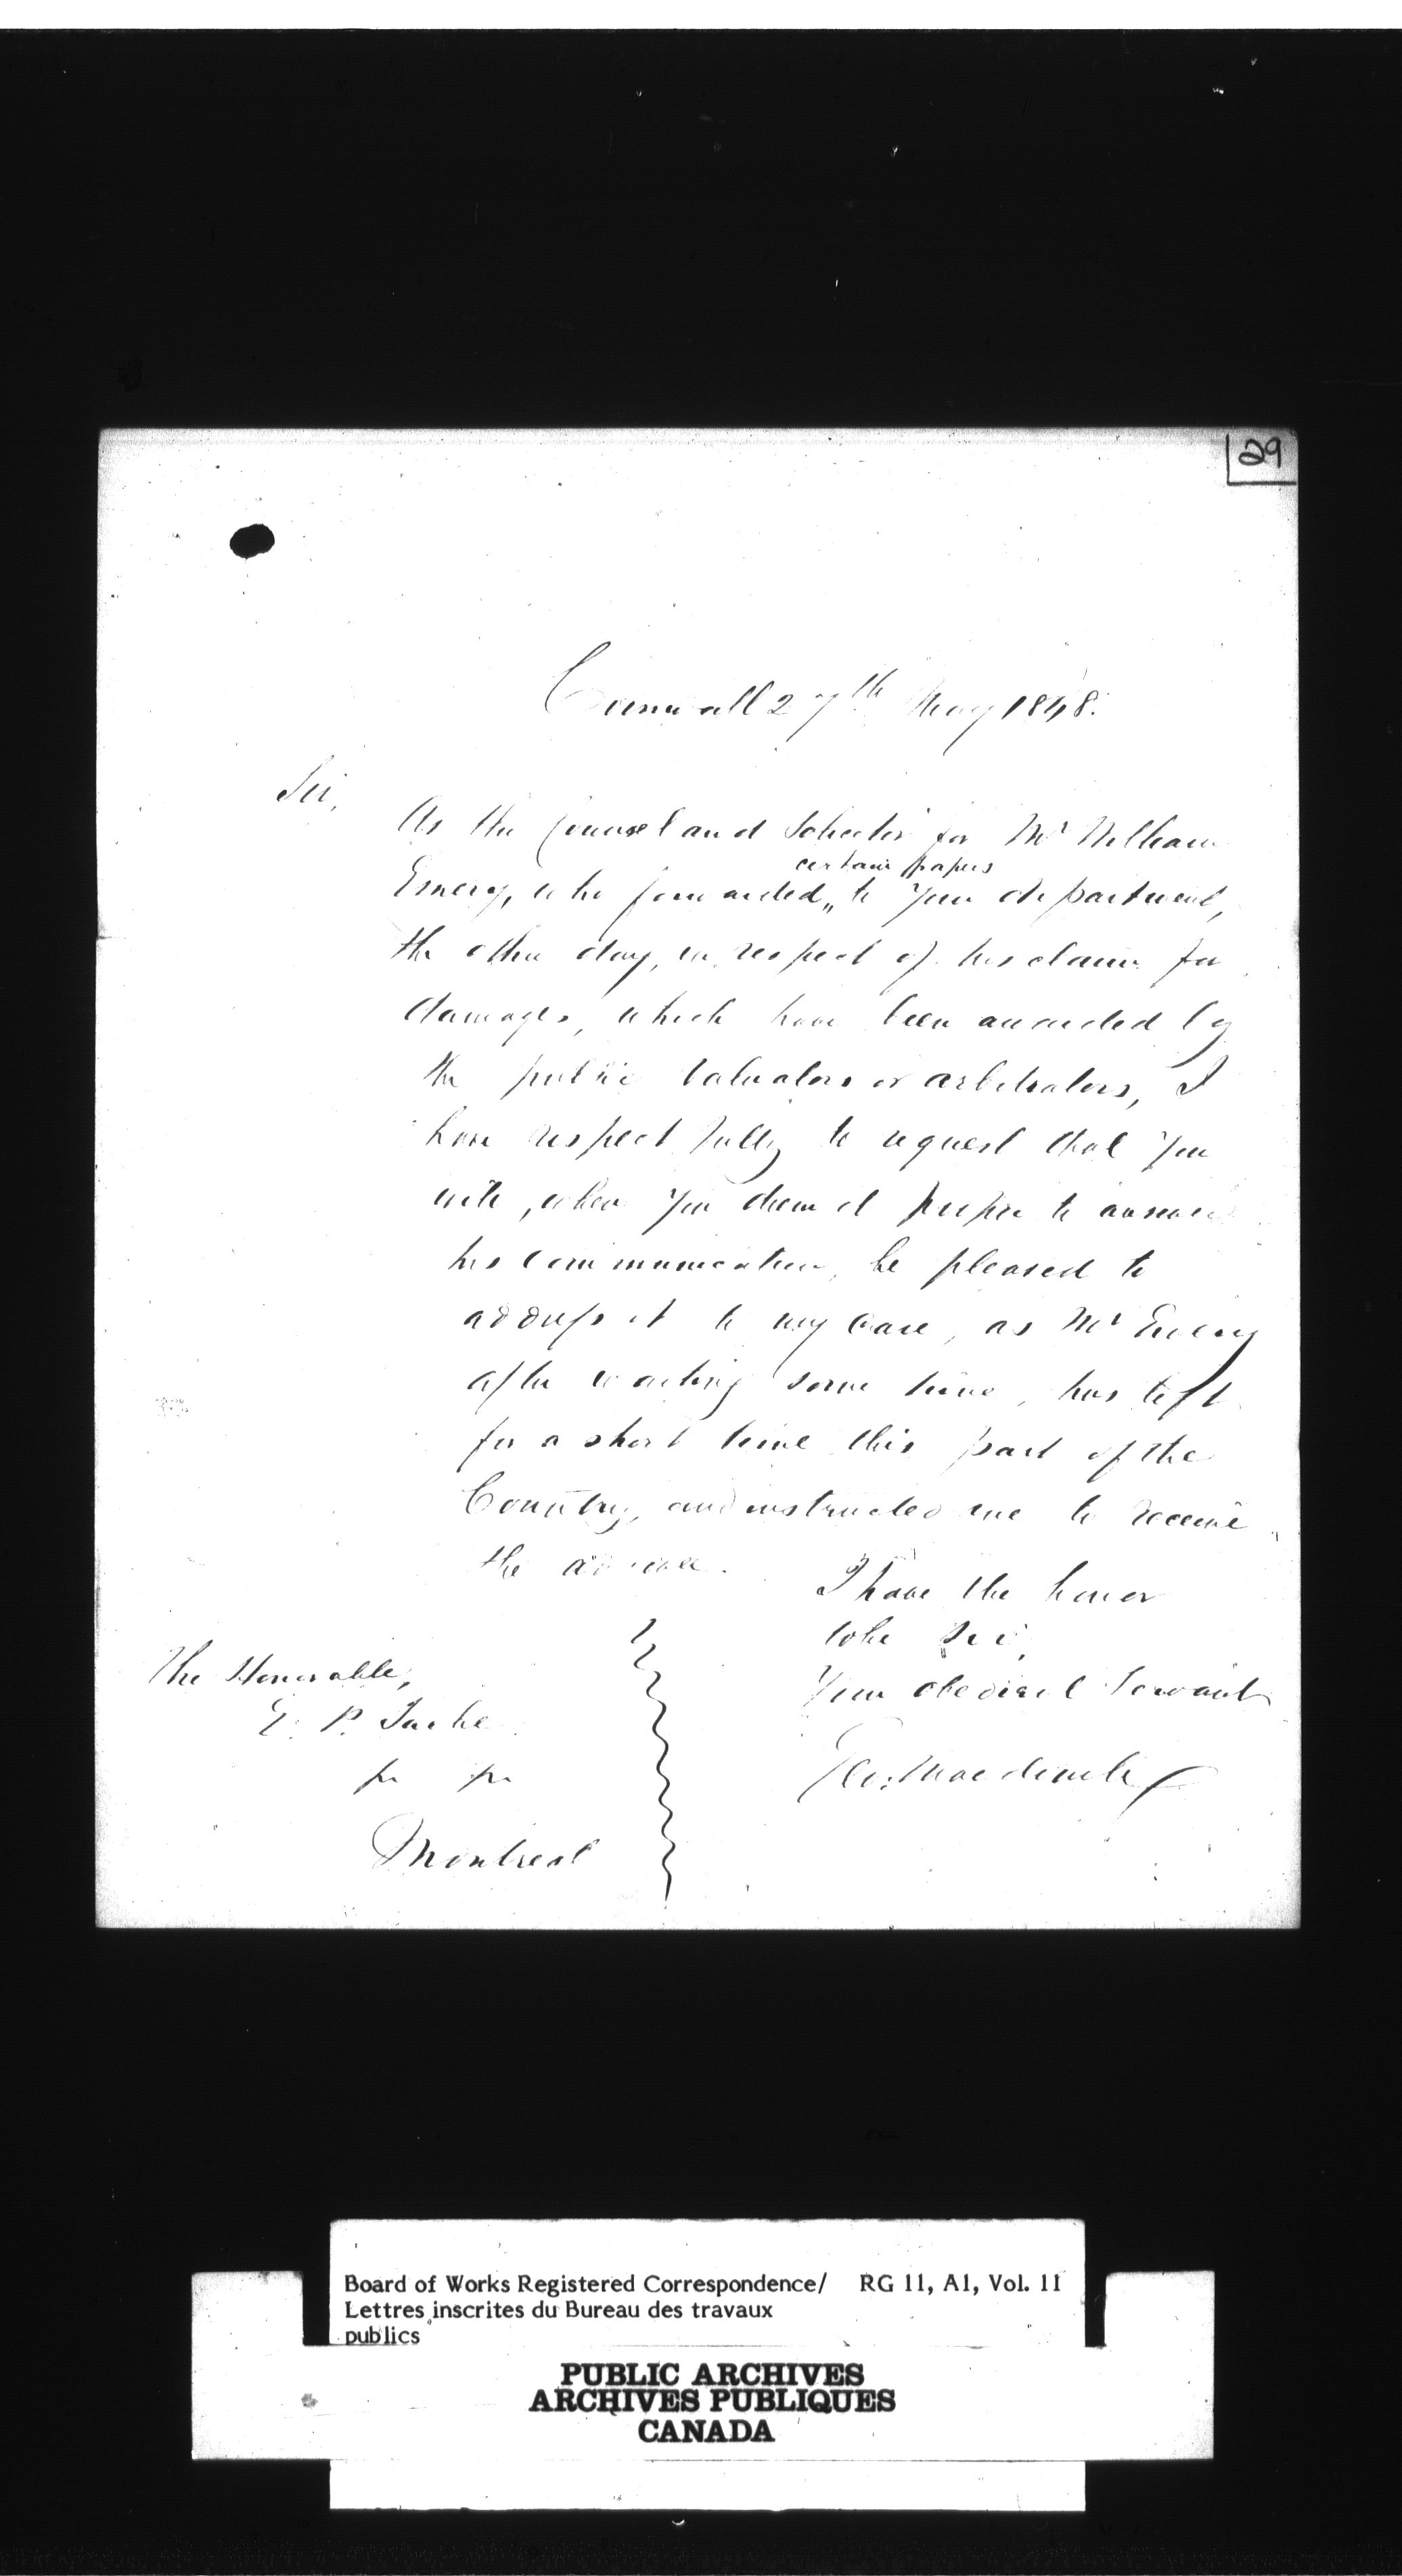 29
Cornwall 27th May 1848.
Sir,
As the Counsel and Solicitor for Mr William
certain papers
Emery, who forwarded " to your department,
the other day, in respect of his claim for
damages, which have been awarded by
the public valuators or arbitrators, I
have respectfully to request that you
will, when you deem it proper to answer
his communication, be pleased to
address it to my care, as Mr Emery
after waiting some time, has left
for a short time this part of the
Country, and instructed me to receive
the
I have the honor
to be Sir,
Your obedient Servant
Geo: Macdonell
The Honorable,
E. P. Tache
Montreal
Board of Works Registered Correspondence/ RG 11, A1, Vol. 11
Lettres inscrites du Bureau des travaux
publics
PUBLIC ARCHIVES
ARCHIVES PUBLIQUES
CANADA